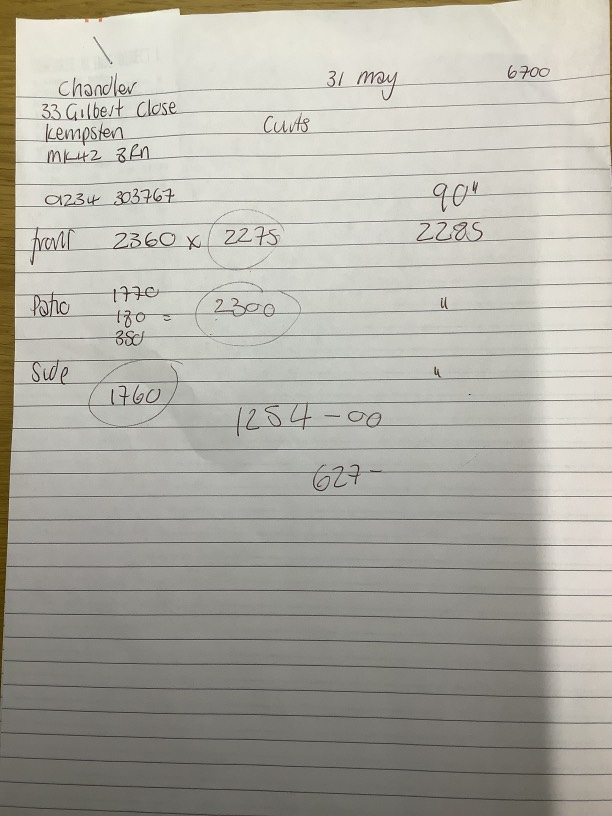 Chandler 31 may 6700
33 Gilbert Close
Kempsten Curts
MK42 8RN
01234 303767 90"
front 2360 x 2275 2285
Patio 1770 2300 "
180 =
350
Side 1760 "
1254-00
627-